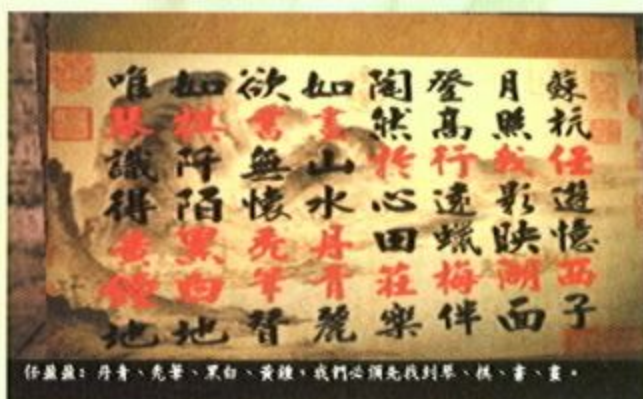 蘇杭任遊憶西子
月照我影映湖面
登高行遠蠟梅伴
陶然於心田莊樂
如畫山水丹青麗
欲書無懷禿筆
如棋阡陌黑白地
唯琴識得黃鐘地
任盈盈：丹青、禿筆、黑白、黃鐘，我們必須先找到琴、棋、書、畫。